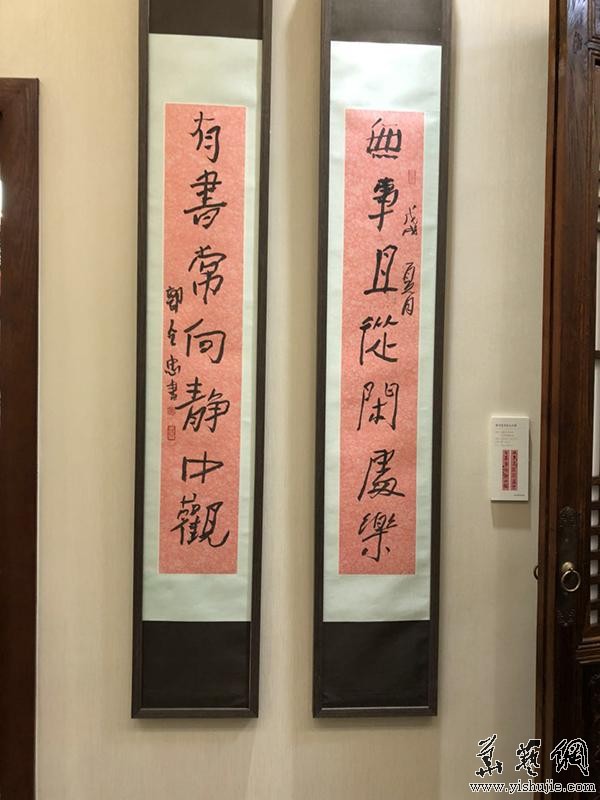 無事且從閑處樂
戊戌夏月
有書常向靜中觀
郭全忠書
華藝網
www.yishujie.com